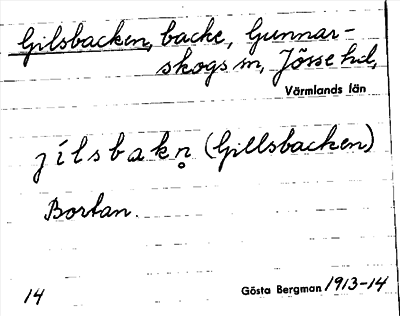 Gilsbacken, backe, Gunnar-
skogs sn, Jösse hd,
Värmlands län
jílsbakn̥ (Gillsbacken)
Bortan.
14
Gösta Bergman 1913-14